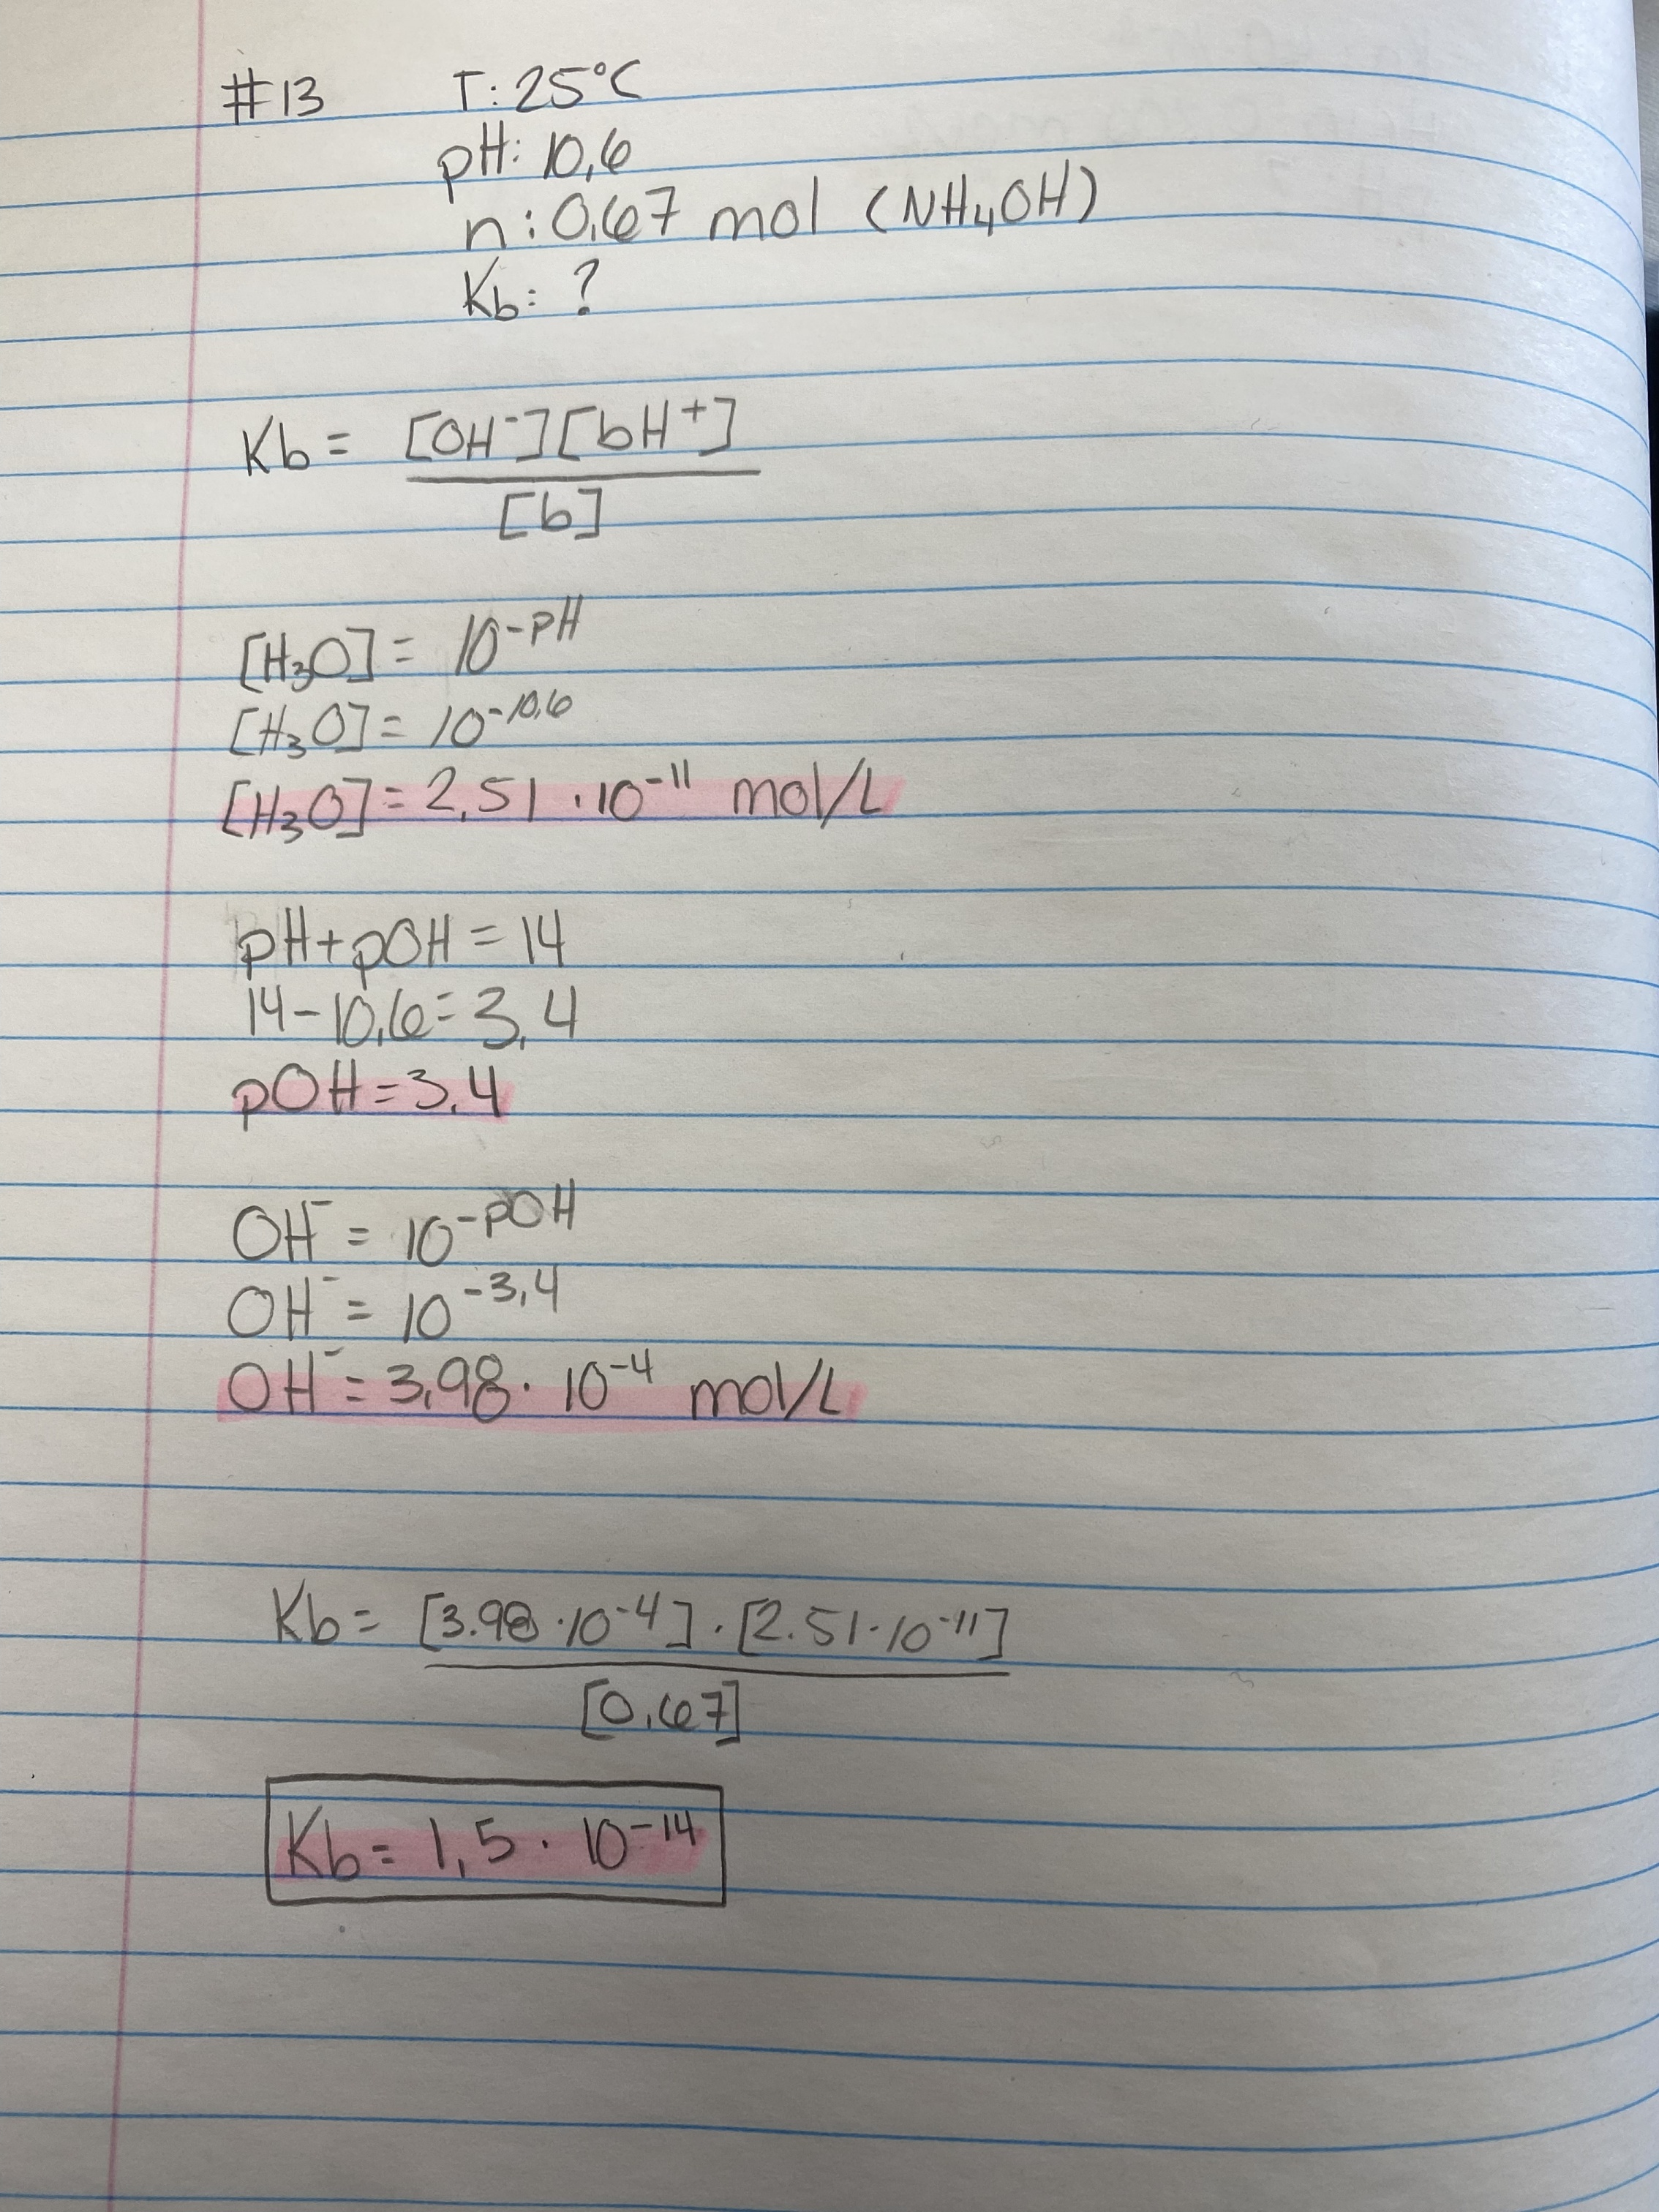 #13 T: 25°C
pH: 10,6
n: 0,67 mol (NH₄OH)
Kb: ?
Kb = [OH⁻][bH⁺]
[b]
[H₃O] = 10⁻ᵖᴴ
[H₃O] = 10⁻¹⁰,⁶
[H₃O] = 2,51 · 10⁻¹¹ mol/L
pH + pOH = 14
14 - 10,6 = 3,4
pOH = 3,4
OH⁻ = 10⁻ᵖᴼᴴ
OH⁻ = 10⁻³,⁴
OH⁻ = 3,98 · 10⁻⁴ mol/L
Kb = [3.98 · 10⁻⁴] · [2.51 · 10⁻¹¹]
[0.67]
Kb = 1,5 · 10⁻¹⁴